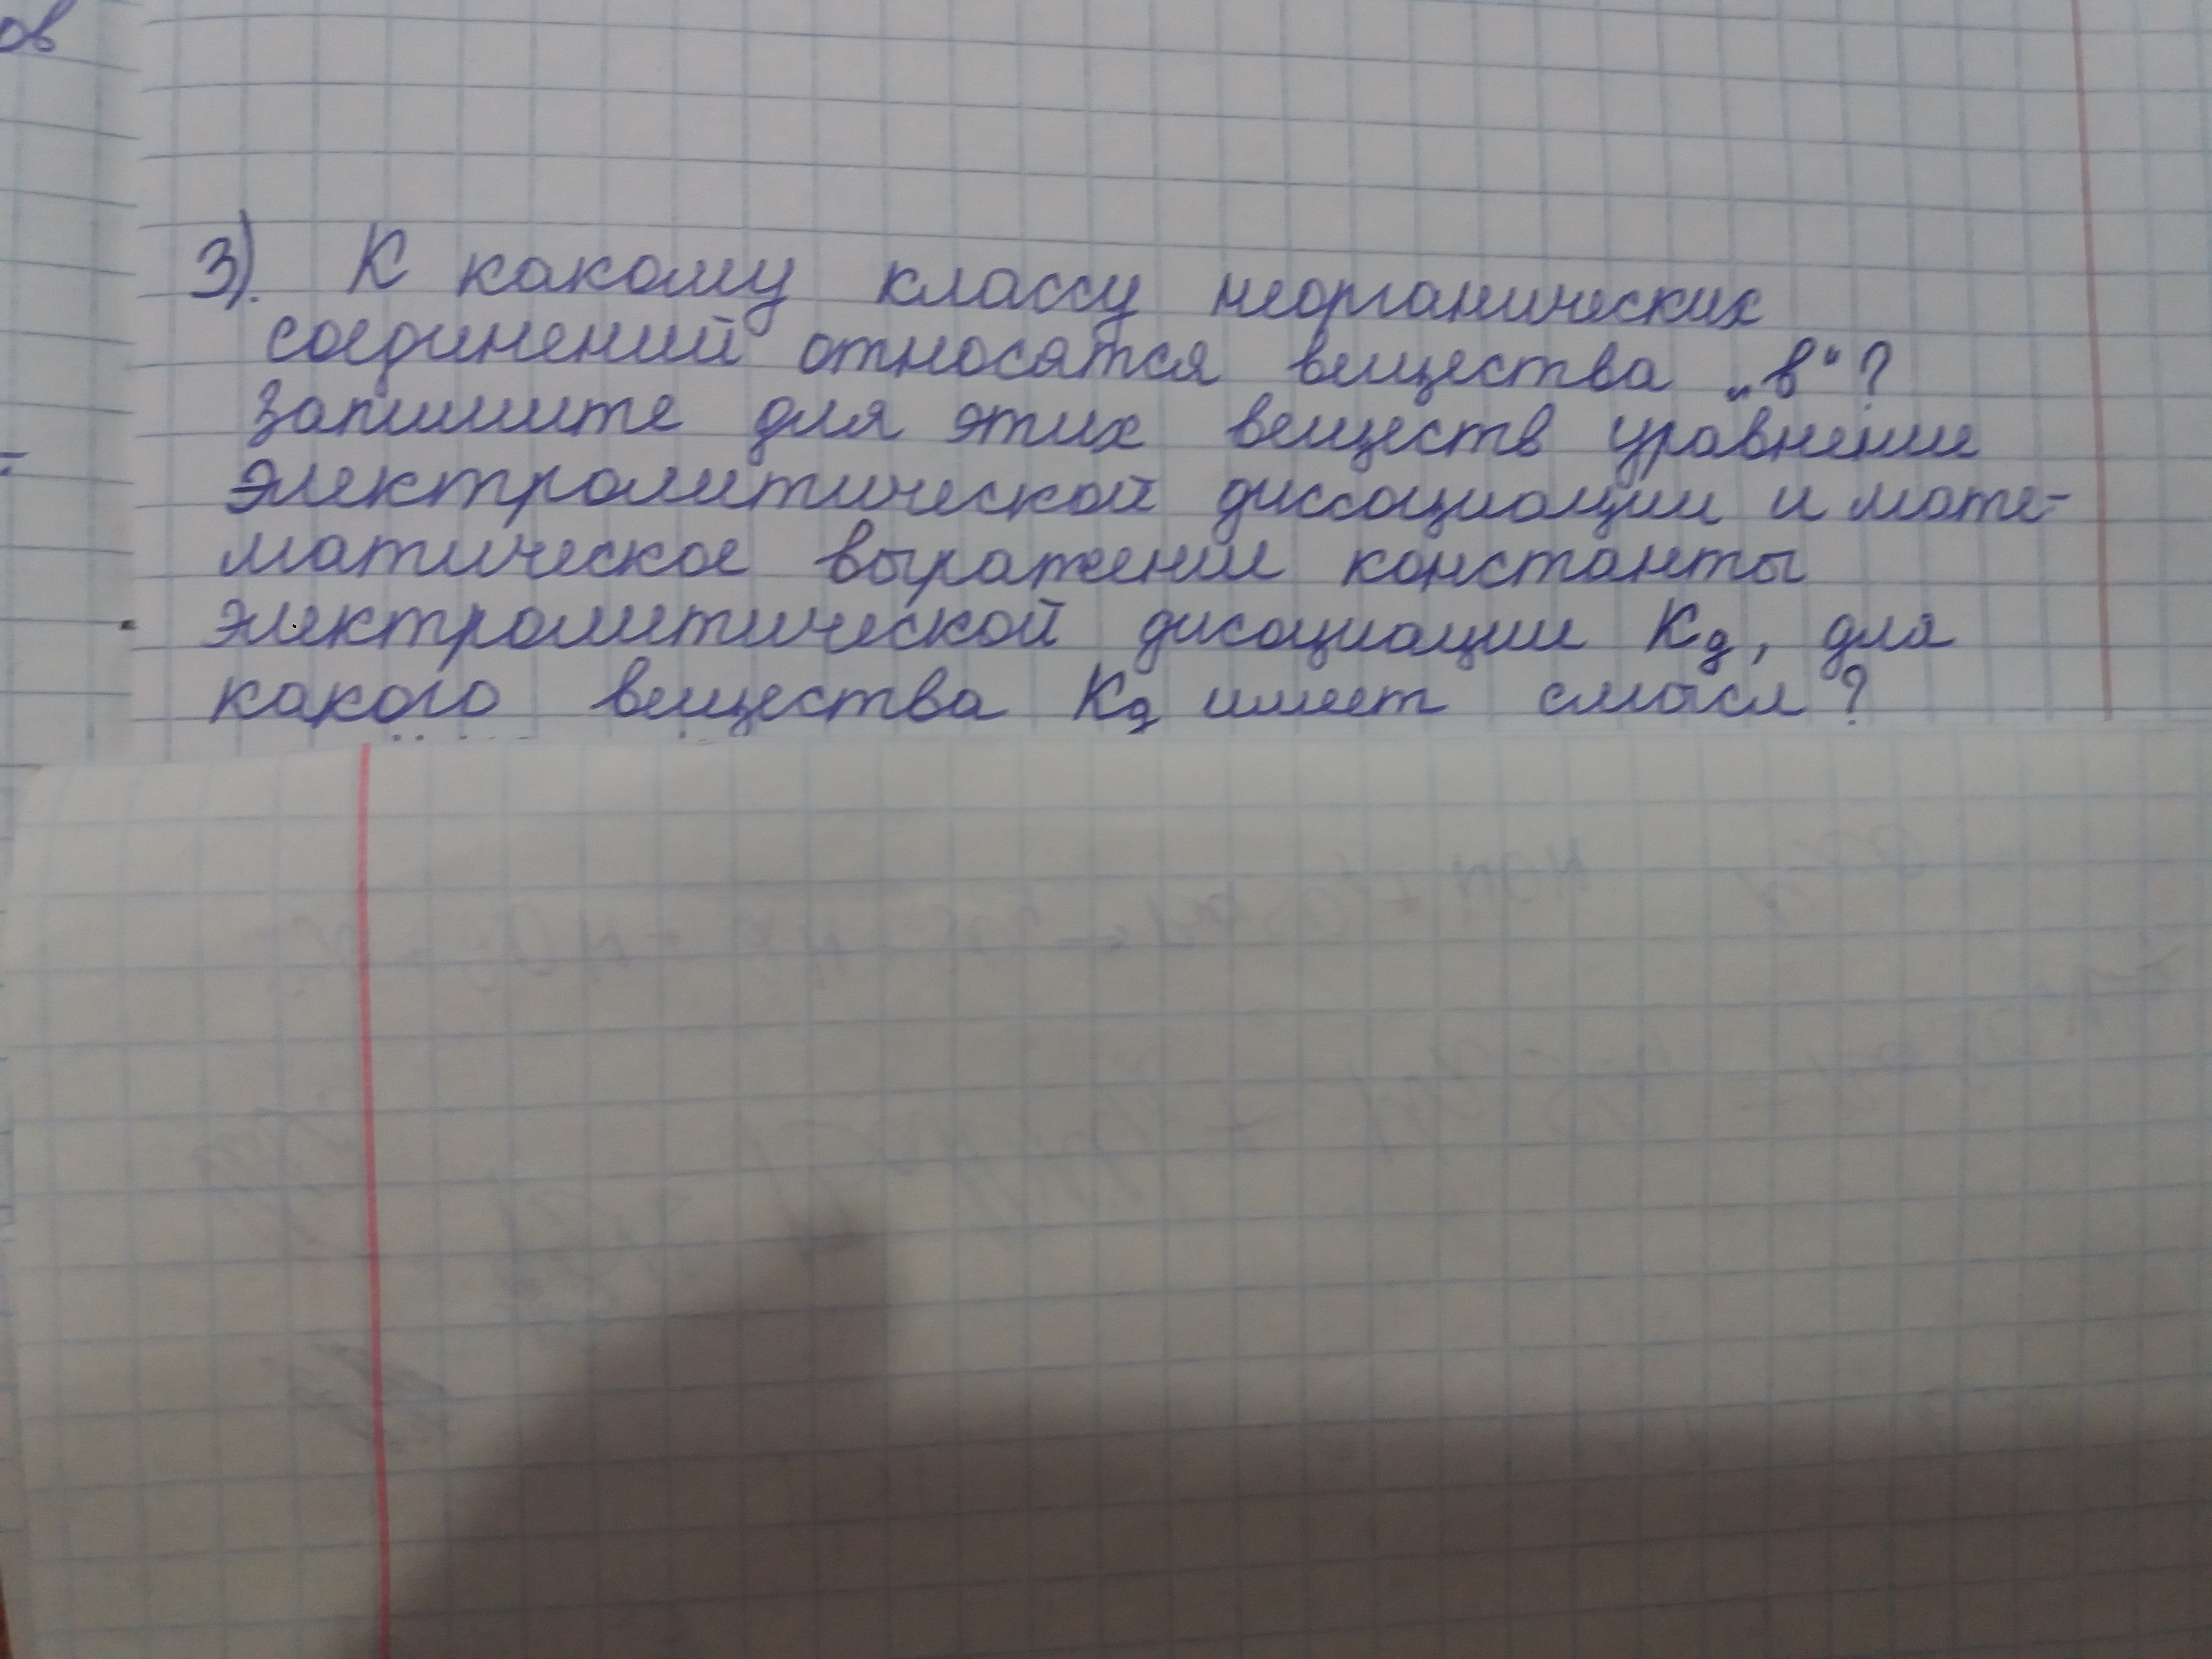 ов
3). К какому классу неорганических
соединений относятся вещества „в“?
Запишите для этих веществ уравнение
электролитической диссоциации и мате-
матическое выражение константы
электролитической дисоциации Kд, для
какого вещества Kд имеет смысл?